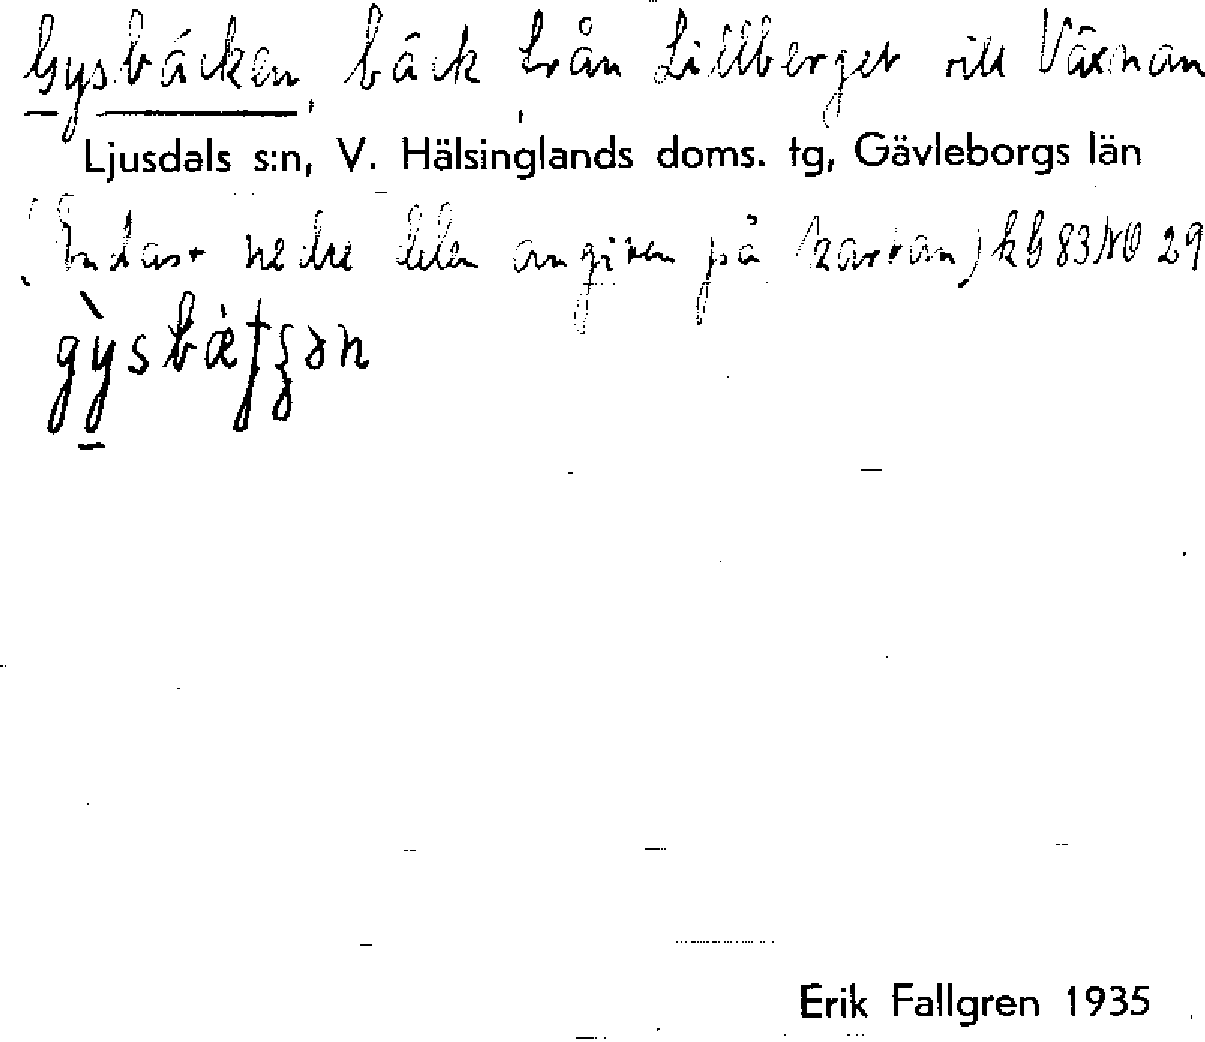 Gysbäcken, bäck från Lillberget till Växnan
Ljusdals s:n, V. Hälsinglands doms. tg, Gävleborgs län
(Endast nedre delen angiven på kartan) kb 83 NO 29
gỳsbæ̀tʂən
Erik Fallgren 1935